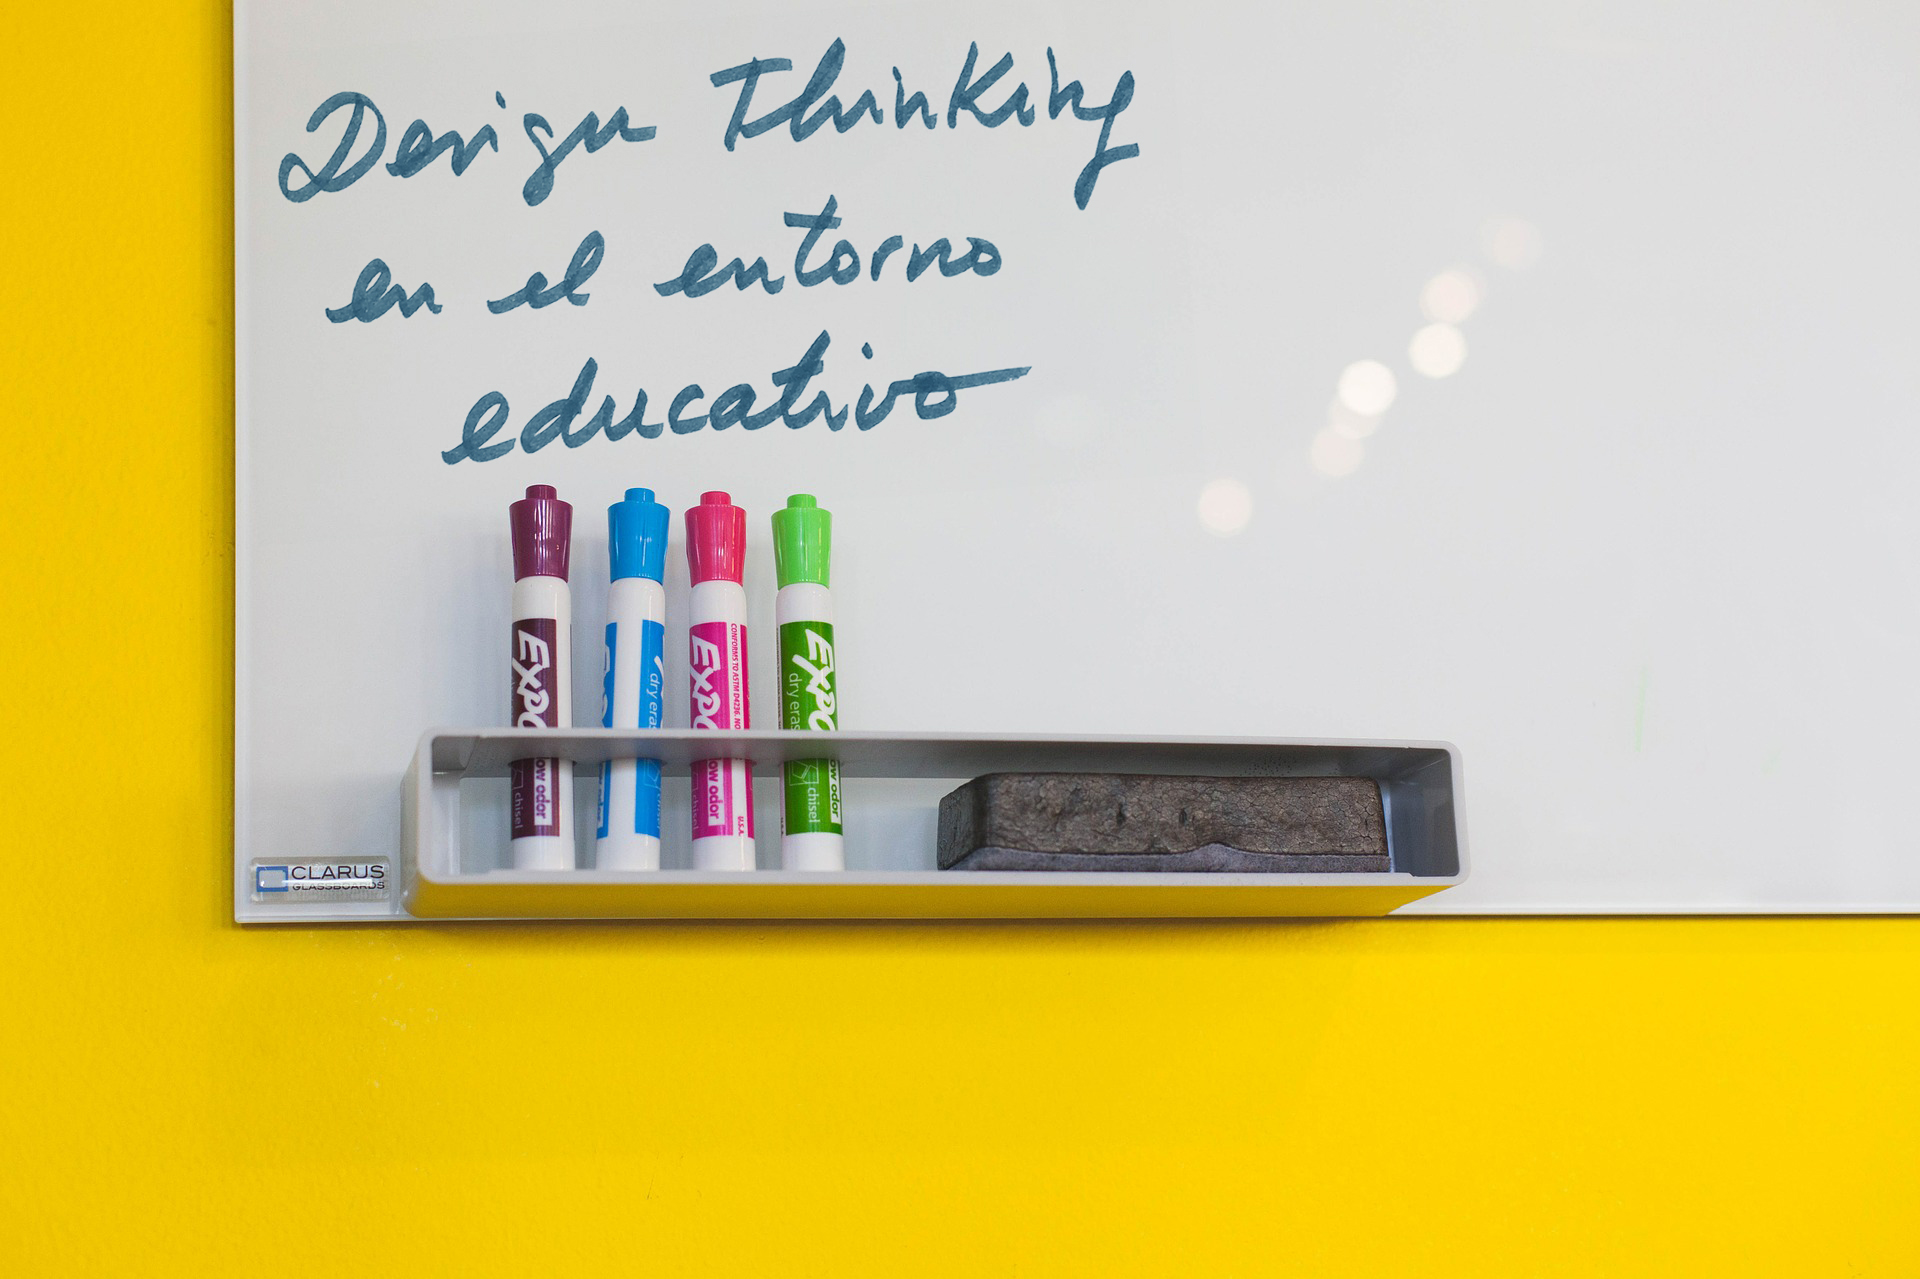 Design Thinking
en el entorno
educativo
EXPO
dry eras
low odor
chisel
dry eras
EXPO
CONFORMS TO ASTM D4236. NO
low odor
chisel
U.S.A.
EXPO
dry eras
low odor
chisel
CLARUS
GLASSBOARDS